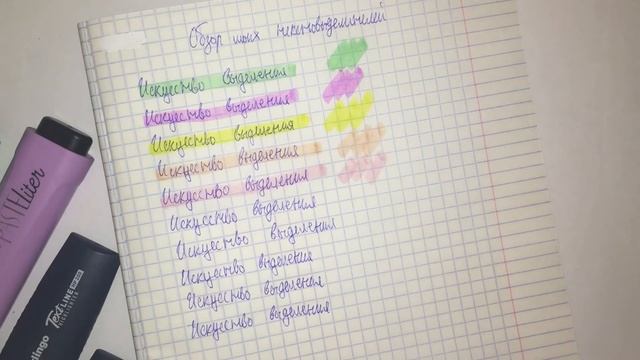 Обзор моих текстовыделителей
Искусство выделения
Искусство выделения
Искусство выделения
Искусство выделения
Искусство выделения
Искусство выделения
Искусство выделения
Искусство выделения
Искусство выделения
Искусство выделения
Hliter
TextLINE
HIGHLIGHTER
lingo